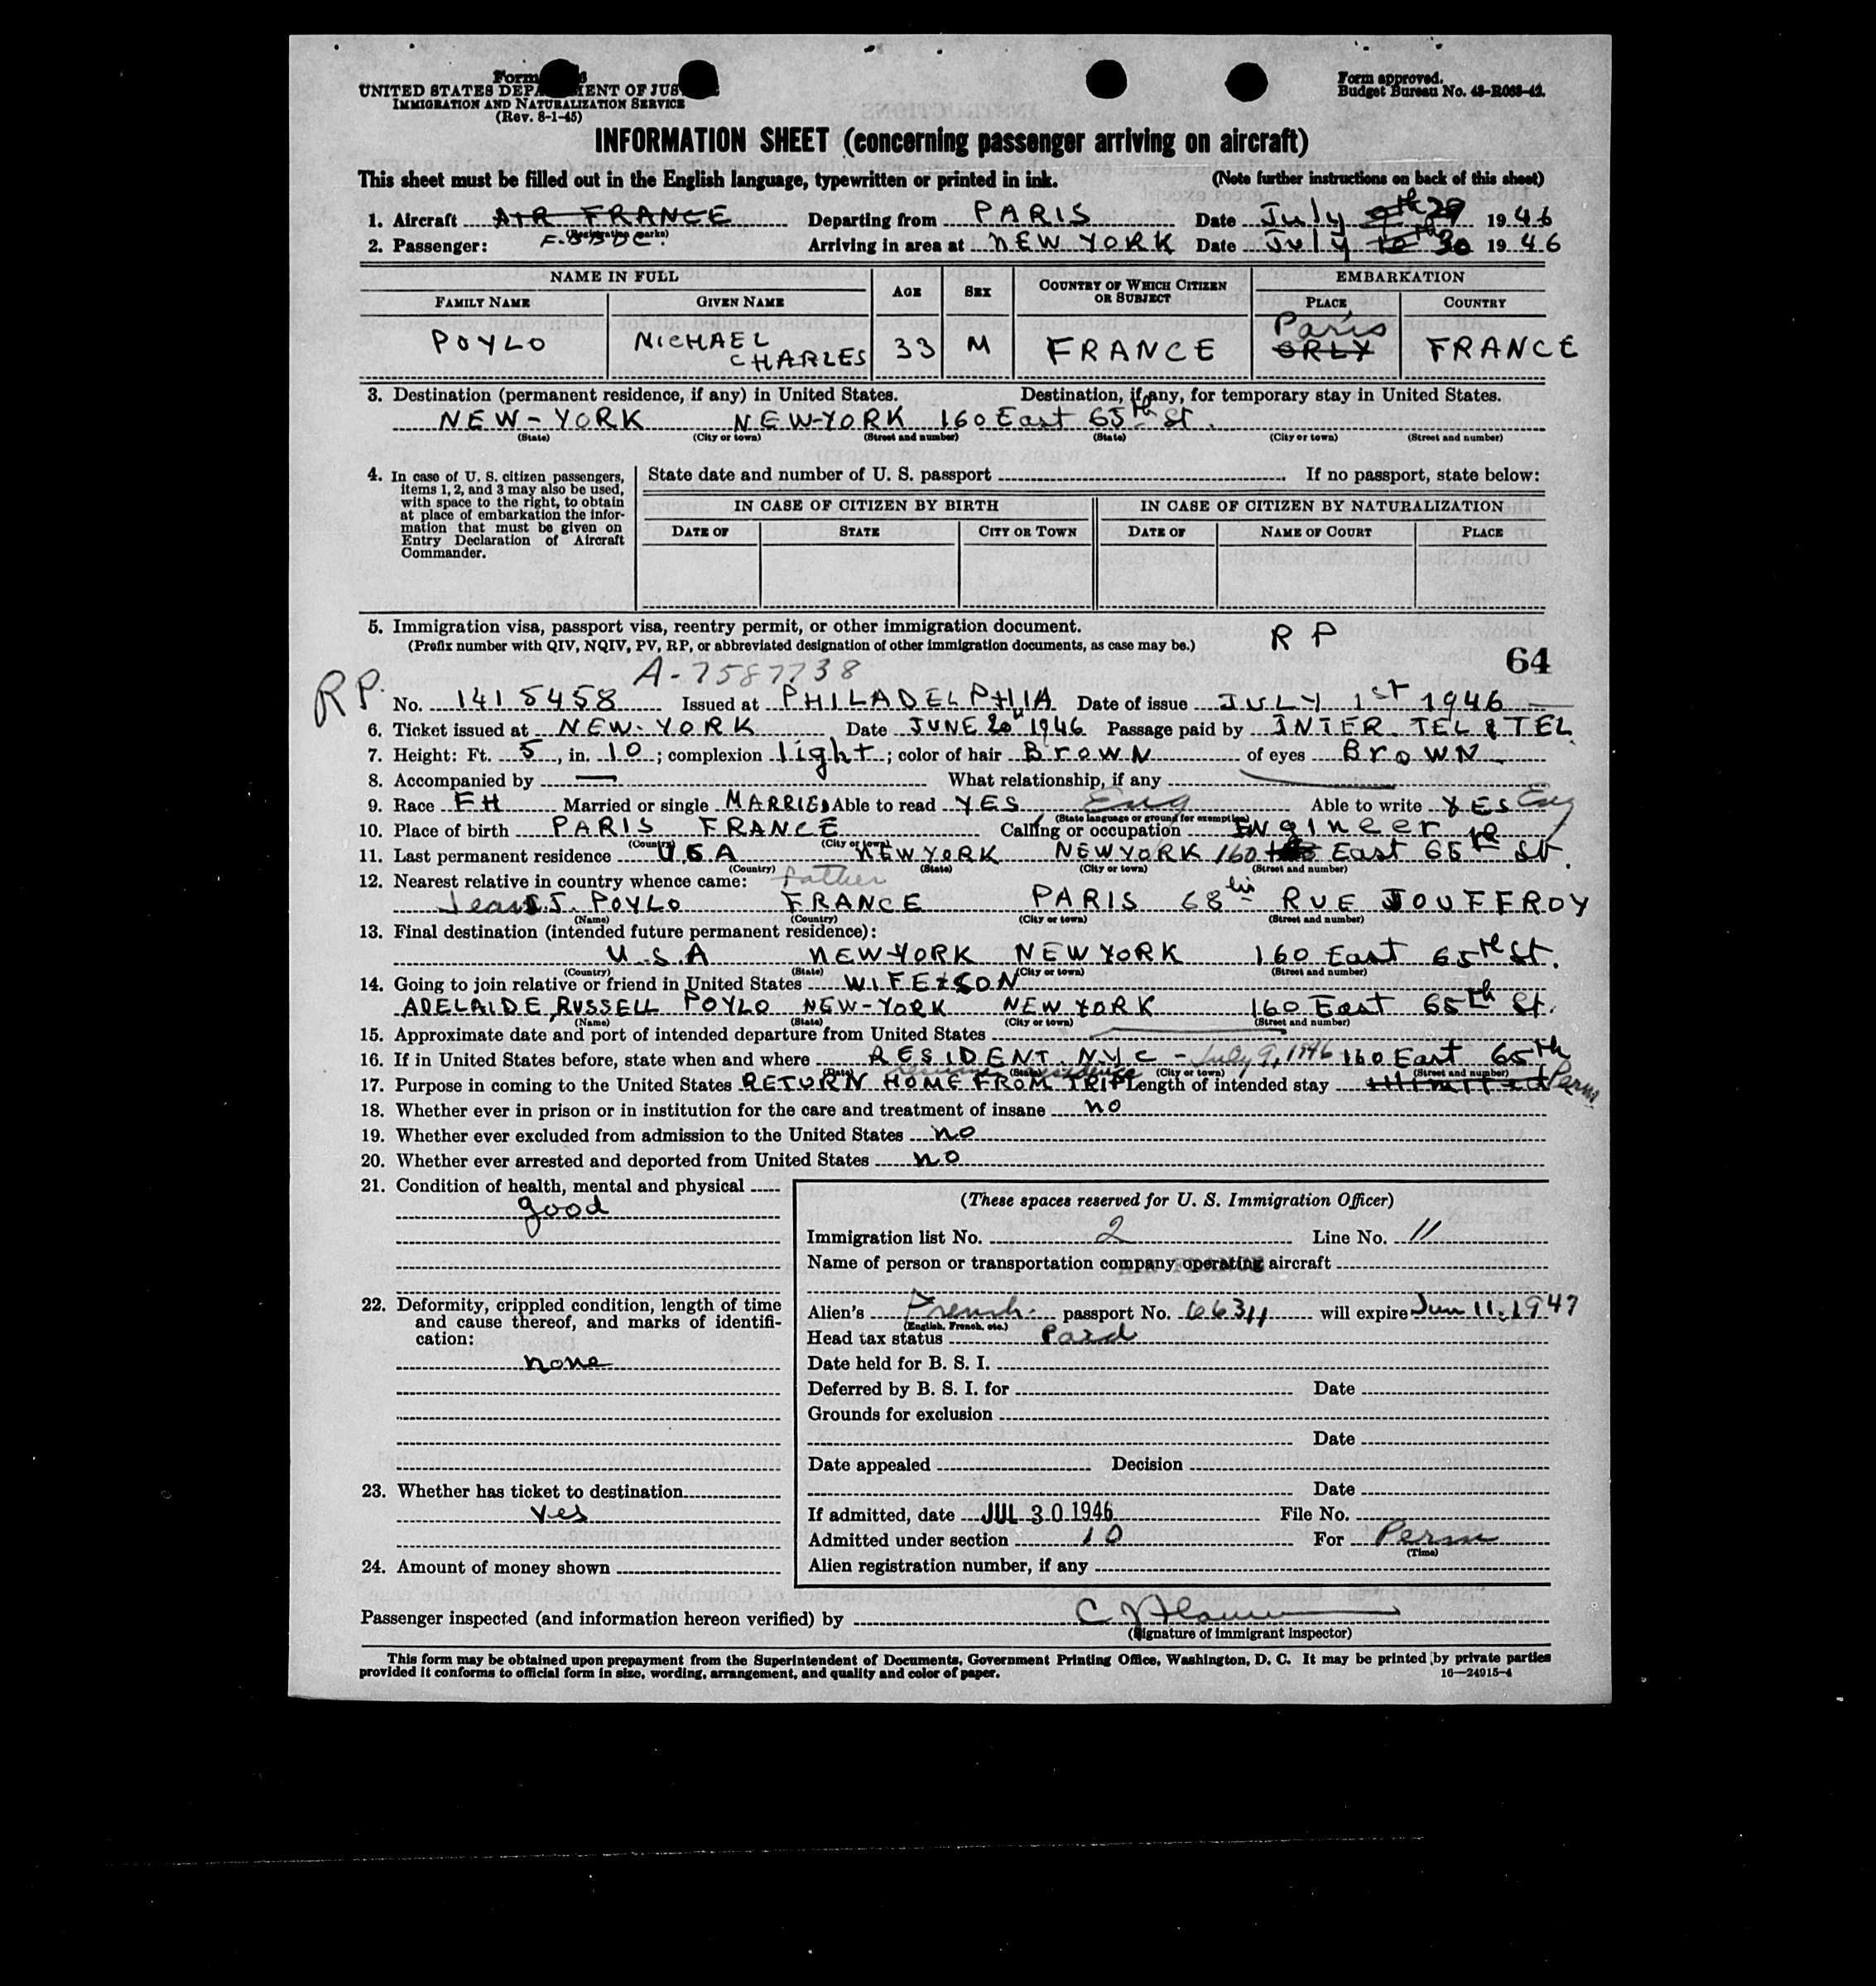 Form
UNITED STATES DEPARTMENT OF JUS
IMMIGRATION AND NATURALIZATION SERVICE
(Rev. 8-1-45)
Form approved.
Budget Bureau No. 43-R063-42.
INFORMATION SHEET (concerning passenger arriving on aircraft)
This sheet must be filled out in the English language, typewritten or printed in ink. (Note further instructions on back of this sheet)
1. Aircraft AIR FRANCE Departing from PARIS Date July 9th 29 1946
(Registration marks)
2. Passenger: F-BBDC. Arriving in area at NEW YORK Date July 10th 30 1946
NAME IN FULL AGE SEX COUNTRY OF WHICH CITIZEN OR SUBJECT EMBARKATION
FAMILY NAME GIVEN NAME PLACE COUNTRY
POYLO MICHAEL CHARLES 33 M FRANCE Paris ORLY FRANCE
3. Destination (permanent residence, if any) in United States. Destination, if any, for temporary stay in United States.
NEW-YORK NEW-YORK 160 East 65th St.
(State) (City or town) (Street and number) (State) (City or town) (Street and number)
4. In case of U. S. citizen passengers, items 1, 2, and 3 may also be used, with space to the right, to obtain at place of embarkation the information that must be given on Entry Declaration of Aircraft Commander.
State date and number of U. S. passport If no passport, state below:
IN CASE OF CITIZEN BY BIRTH IN CASE OF CITIZEN BY NATURALIZATION
DATE OF STATE CITY OR TOWN DATE OF NAME OF COURT PLACE
5. Immigration visa, passport visa, reentry permit, or other immigration document.
(Prefix number with QIV, NQIV, PV, RP, or abbreviated designation of other immigration documents, as case may be.) R P
64
A-7587738
RP. No. 1415458 Issued at PHILADELPHIA Date of issue JULY 1st 1946
6. Ticket issued at NEW-YORK Date JUNE 20 1946 Passage paid by INTER. TEL & TEL
7. Height: Ft. 5, in. 10; complexion light; color of hair Brown of eyes Brown
8. Accompanied by — What relationship, if any —
9. Race FH Married or single MARRIED Able to read YES Eng Able to write YES Eng
(State language or ground for exemption)
10. Place of birth PARIS FRANCE Calling or occupation Engineer
(Country) (City or town)
11. Last permanent residence U.S.A NEW YORK NEW YORK 160 East 65th St.
(Country) (State) (City or town) (Street and number)
12. Nearest relative in country whence came: father
Jean J. POYLO FRANCE PARIS 68 bis RUE JOUFFROY
(Name) (Country) (City or town) (Street and number)
13. Final destination (intended future permanent residence):
U.S.A NEW-YORK NEW YORK 160 East 65th St.
(Country) (State) (City or town) (Street and number)
14. Going to join relative or friend in United States WIFE & SON
ADELAIDE RUSSELL POYLO NEW-YORK NEW YORK 160 East 65th St.
(Name) (State) (City or town) (Street and number)
15. Approximate date and port of intended departure from United States
16. If in United States before, state when and where RESIDENT. NYC - July 9, 1946 160 East 65th
(Date) (State) (City or town) (Street and number)
resume residence
17. Purpose in coming to the United States RETURN HOME FROM TRIP Length of intended stay Perm
18. Whether ever in prison or in institution for the care and treatment of insane no
19. Whether ever excluded from admission to the United States no
20. Whether ever arrested and deported from United States no
21. Condition of health, mental and physical
good
22. Deformity, crippled condition, length of time and cause thereof, and marks of identification:
none
23. Whether has ticket to destination
yes
24. Amount of money shown
(These spaces reserved for U. S. Immigration Officer)
Immigration list No. 2 Line No. 11
Name of person or transportation company operating aircraft
AIR FRANCE
Alien's French passport No. 6634 will expire Jun 11, 1947
(English, French, etc.)
Head tax status Paid
Date held for B. S. I.
Deferred by B. S. I. for Date
Grounds for exclusion
Date
Date appealed Decision
Date
If admitted, date JUL 30 1946 File No.
Admitted under section 10 For Perm
(Time)
Alien registration number, if any
Passenger inspected (and information hereon verified) by
(Signature of immigrant inspector)
This form may be obtained upon prepayment from the Superintendent of Documents, Government Printing Office, Washington, D. C. It may be printed by private parties
provided it conforms to official form in size, wording, arrangement, and quality and color of paper. 16—24915-4